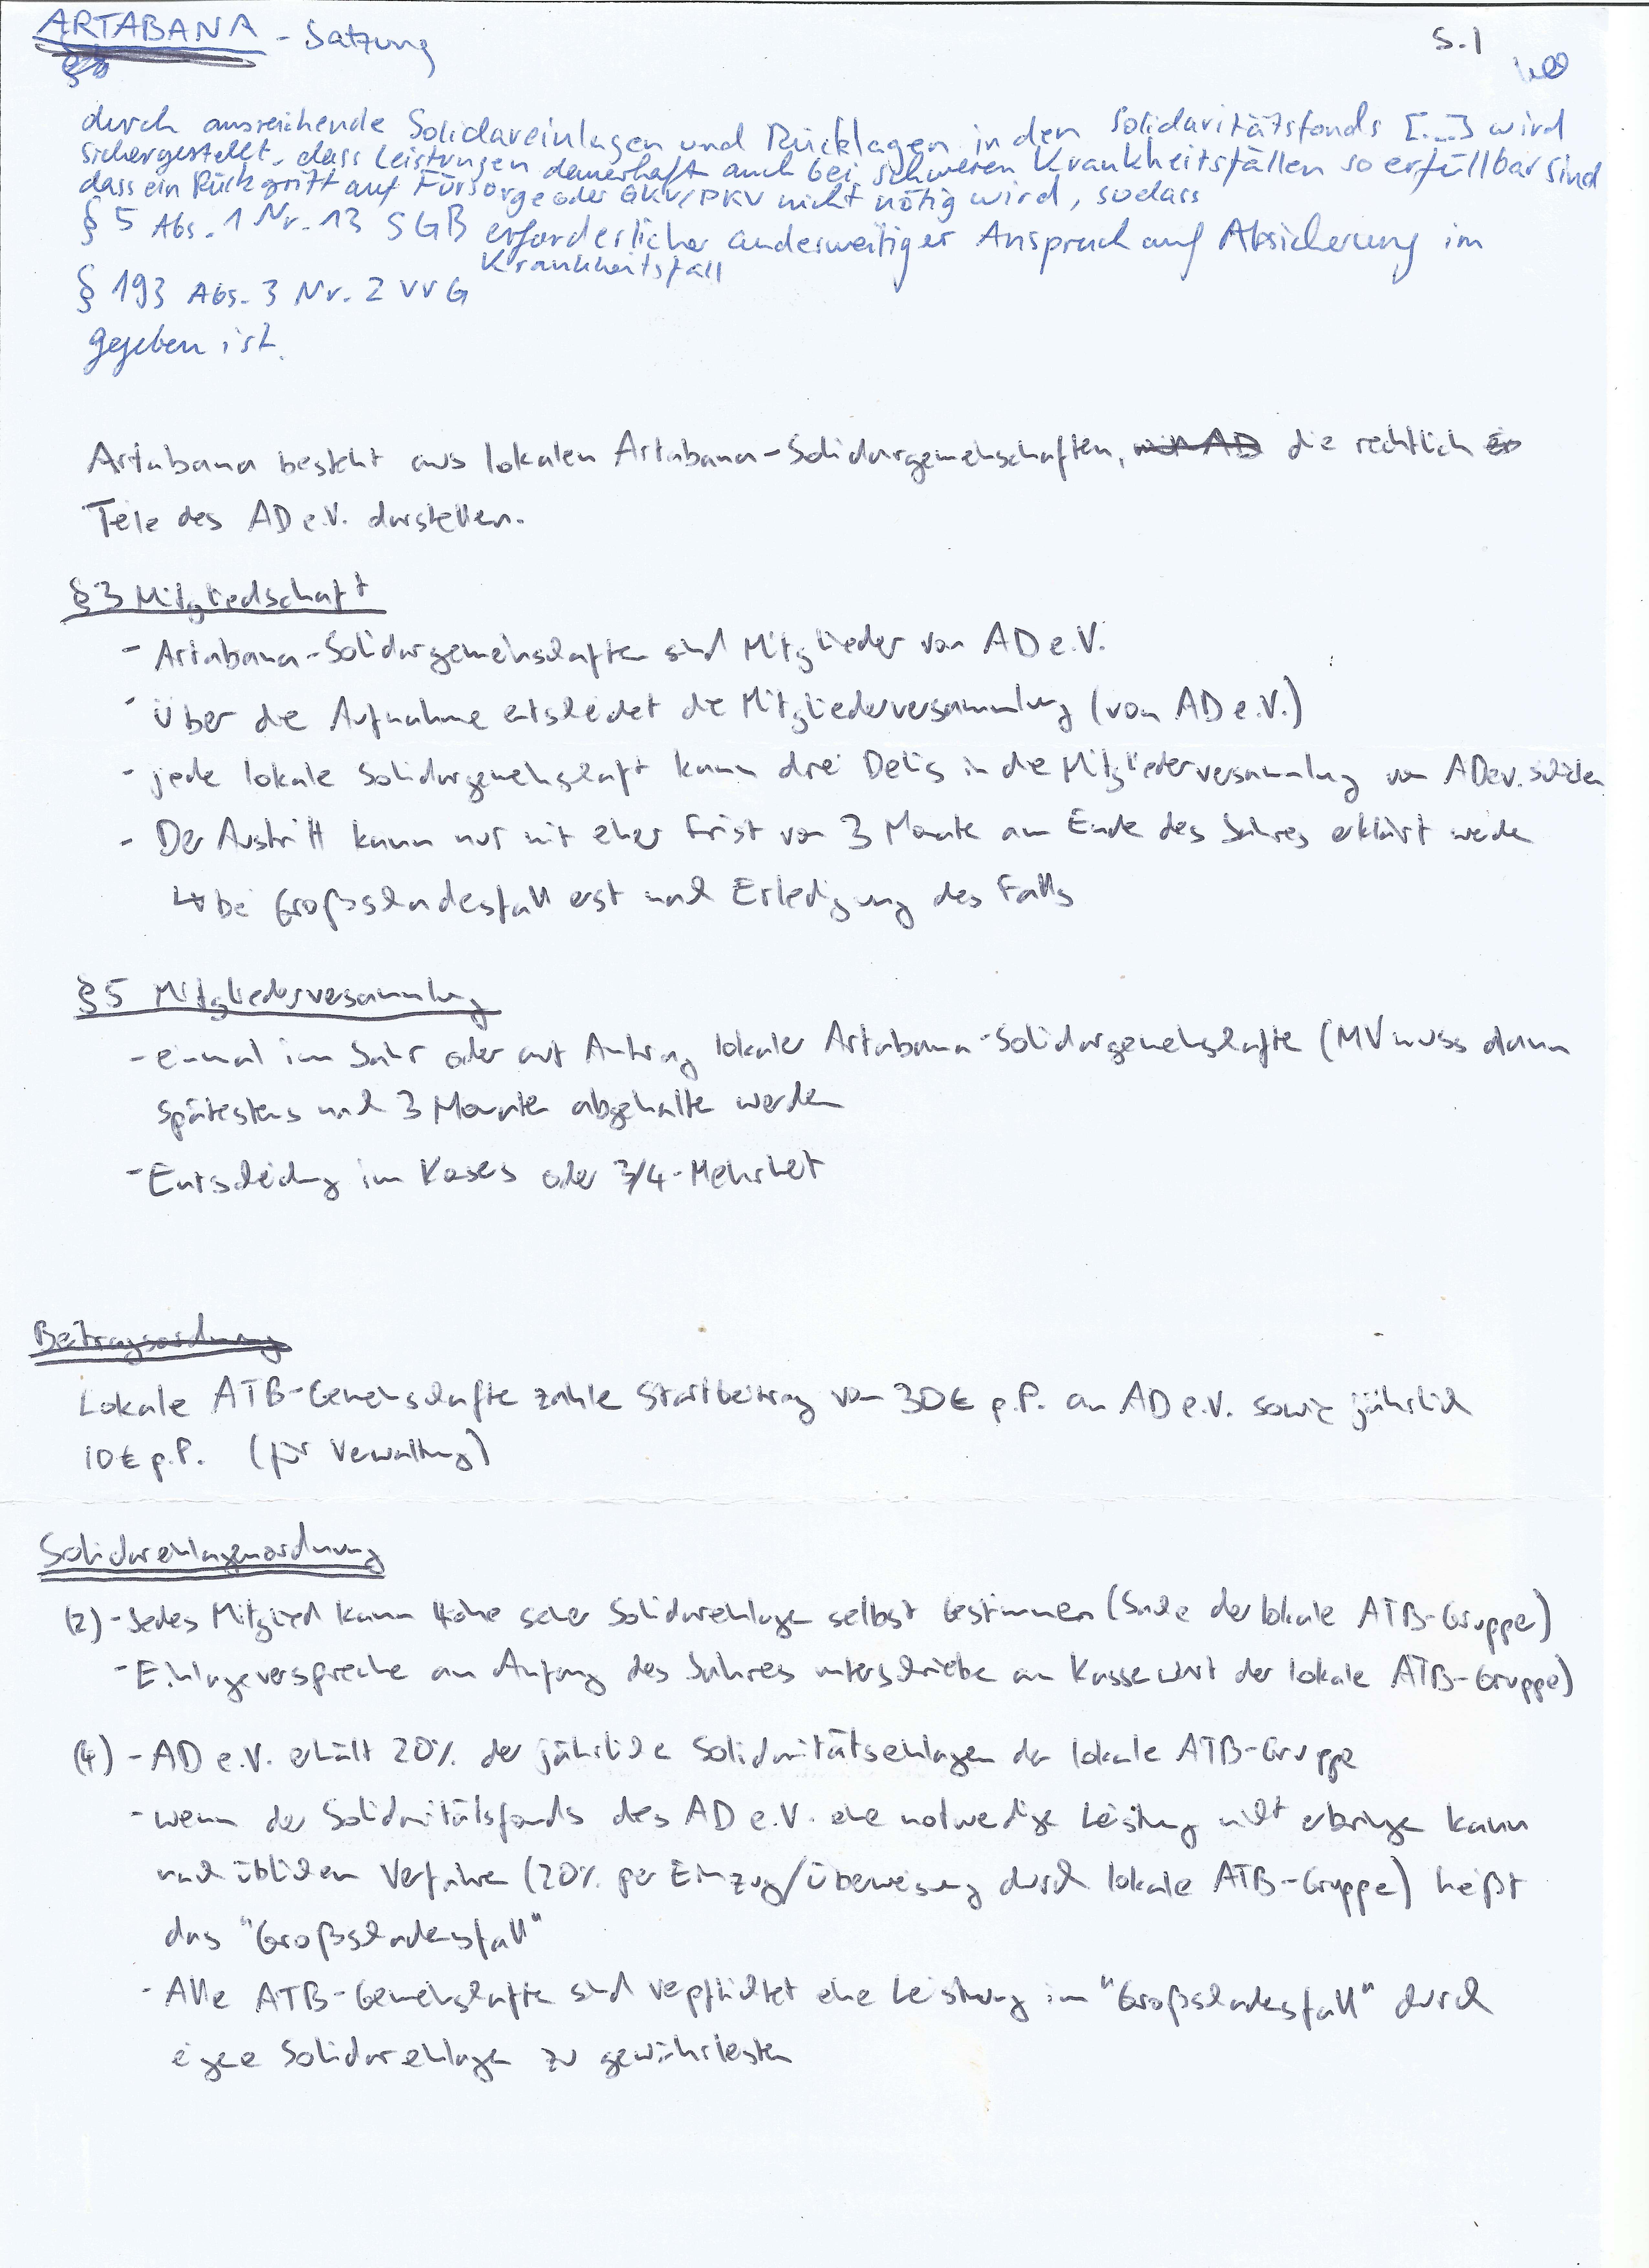 ARTABANA - Satzung
S. 1
durch ausreichende Solidareinlagen und Rücklagen in den Solidaritätsfonds [...] wird
sichergestellt, dass Leistungen dauerhaft auch bei schweren Krankheitsfällen so erfüllbar sind
dass ein Rückgriff auf Fürsorge oder GKV/PKV nicht nötig wird, sodass
§ 5 Abs. 1 Nr. 13 SGB erforderlicher anderweitiger Anspruch auf Absicherung im
Krankheitsfall
§ 193 Abs. 3 Nr. 2 VVG
gegeben ist.
Artabana besteht aus lokalen Artabana-Solidargemeinschaften, die rechtlich
Teile des AD e.V. darstellen.
§3 Mitgliedschaft
- Artabana-Solidargemeinschaften sind Mitglieder von AD e.V.
- über die Aufnahme entscheidet die Mitgliederversammlung (von AD e.V.)
- jede lokale Solidargemeinschaft kann drei Delis in die Mitgliederversammlung von AD e.V. schicken
- Der Austritt kann nur mit einer Frist von 3 Monate am Ende des Jahres erklärt werden
↳ bei Großschadensfall erst nach Erledigung des Falls
§5 Mitgliederversammlung
- einmal im Jahr oder auf Antrag lokaler Artabana-Solidargemeinschaften (MV muss dann
spätestens nach 3 Monaten abgehalten werden
- Entscheidung im Kosens oder 3/4-Mehrheit
Beitragsordnung
Lokale ATB-Gemeinschaften zahlen Startbeitrag von 30€ p.P. an AD e.V. sowie jährlich
10€ p.P. (für Verwaltung)
Solidareinlagenordnung
(2) - Jedes Mitglied kann Höhe seiner Solidareinlagen selbst bestimmen (Sache der lokalen ATB-Gruppe)
- Einlageversprechen am Anfang des Jahres unterschrieben an Kassenwart der lokalen ATB-Gruppe)
(4) - AD e.V. erhält 20% der jährliche Solidaritätseinlagen der lokale ATB-Gruppe
- wenn der Solidaritätsfonds des AD e.V. eine notwendige Leistung nicht erbringen kann
nach üblichem Verfahren (20% per Einzug/Überweisung durch lokale ATB-Gruppe) heißt
das "Großschadensfall"
- Alle ATB-Gemeinschaften sind verpflichtet eine Leistung im "Großschadensfall" durch
eigene Solidareinlagen zu gewährleisten